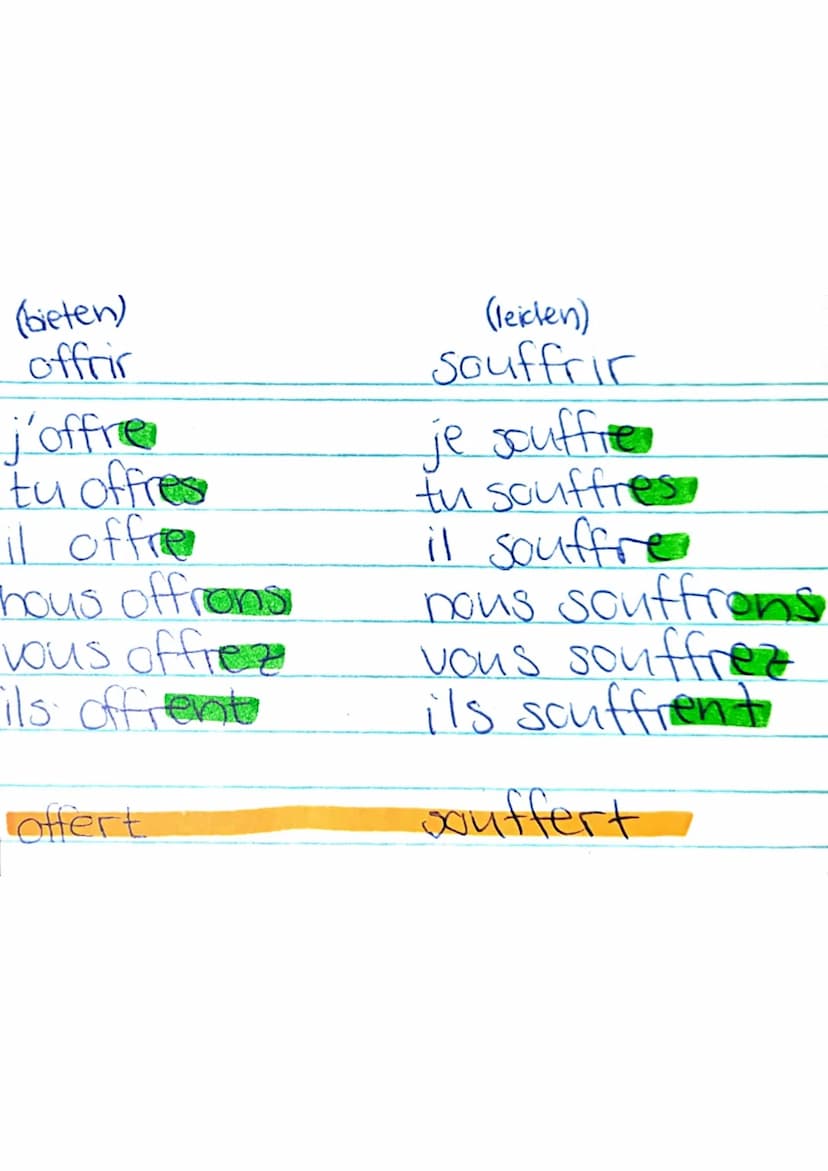 (bieten) (leiden)
offrir souffrir
j'offre je souffre
tu offres tu souffres
il offre il souffre
nous offrons nous souffrons
vous offrez vous souffrez
ils offrent ils souffrent
offert souffert